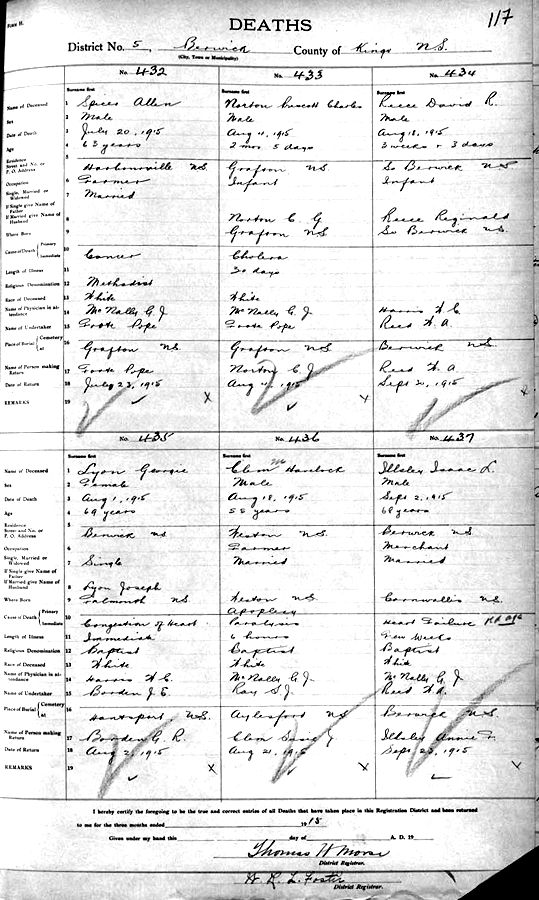 FORM H.
DEATHS
117
District No. 5, Berwick County of Kings N.S.
(City, Town or Municipality)
No. 432 No. 433 No. 434
Surname first Surname first Surname first
Name of Deceased 1 Spicer Allen Norton Prescott Charles Reece David R.
Sex 2 Male Male Male
Date of Death 3 July 20, 1915 Aug 11, 1915 Aug 18, 1915
Age 4 63 years 2 mos 5 days 3 weeks + 3 days
Residence
Street and No. or
P. O. Address 5 Harbourville NS Grafton NS So Berwick NS
Occupation 6 Farmer Infant Infant
Single, Married or Widowed 7 Married
If Single give Name of Father
If Married give Name of Husband 8 Norton C. G Reece Reginald
Where Born 9 Grafton NS So Berwick NS.
Cause of Death Primary Immediate 10 Cancer Cholera
Length of Illness 11 30 days
Religious Denomination 12 Methodist
Race of Deceased 13 White White
Name of Physician in attendance 14 McNally G. J. McNally G. J. Harris W. E.
Name of Undertaker 15 Foote Pope Foote Pope Reed W. A.
Place of Burial Cemetery at 16 Grafton NS Grafton NS Berwick N.S.
Name of Person making Return 17 Foote Pope Norton C. J Reed W. A.
Date of Return 18 July 23, 1915 Aug 1915 Sept 21, 1915
REMARKS 19 x x x
No. 435 No. 436 No. 437
Surname first Surname first Surname first
Name of Deceased 1 Lyon Georgie Clem M Havelock Illsley Isaac L.
Sex 2 Female Male Male
Date of Death 3 Aug 1, 1915 Aug 18, 1915 Sept 2, 1915
Age 4 69 years 58 years 68 years
Residence
Street and No. or
P. O. Address 5 Berwick NS Weston NS. Berwick NS
Occupation 6 Farmer Merchant
Single, Married or Widowed 7 Single Married Married
If Single give Name of Father
If Married give Name of Husband 8 Lyon Joseph
Where Born 9 Falmouth NS Weston NS. Cornwallis NS.
Cause of Death Primary Immediate 10 Congestion of Heart Apoplexy Paralysis Heart Failure
Length of Illness 11 Immediate 6 hours Few Weeks
Religious Denomination 12 Baptist Baptist Baptist
Race of Deceased 13 White White White
Name of Physician in attendance 14 Harris W. E. McNally G. J. McNally G. J
Name of Undertaker 15 Borden J. E. Ray S. J. Reed W. A.
Place of Burial Cemetery at 16 Hantsport, N.S. Aylesford NS Berwick N.S.
Name of Person making Return 17 Borden G. R. Clem Susie J Illsley Annie F.
Date of Return 18 Aug 2, 1915 Aug 21, 1915 Sept 23, 1915
REMARKS 19 x x x
I hereby certify the foregoing to be the true and correct entries of all Deaths that have taken place in this Registration District and been returned
to me for the three months ended 1915
Given under my hand this day of A. D. 19
Thomas H Morse
District Registrar.
H. R. L. Foster
District Registrar.